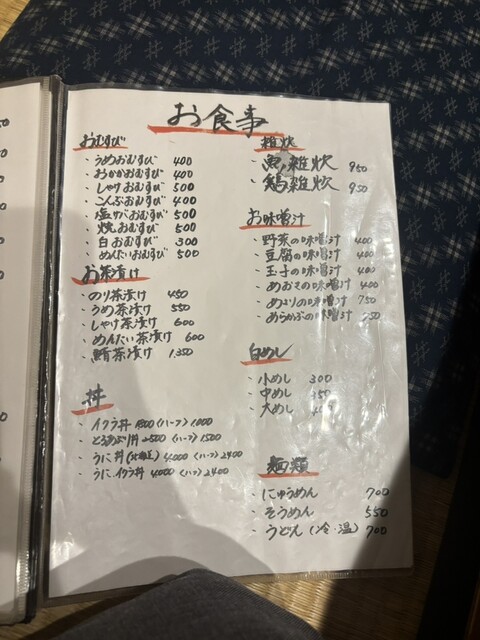 お食事
おむすび
・うめおむすび 400
・おかかおむすび 400
・しゃけおむすび 500
・こんぶおむすび 400
・塩サバおむすび 500
・焼おむすび 500
・白おむすび 300
・めんたいおむすび 500
お茶漬け
・のり茶漬け 450
・うめ茶漬け 550
・しゃけ茶漬け 600
・めんたい茶漬け 600
・鯖茶漬け 1,350
丼
・イクラ丼 1800 (ハーフ) 1,000
・とろあぶり丼 2500 (ハーフ) 1500
・うに丼 4,000 (ハーフ) 2400
・うに、イクラ丼 4,000 (ハーフ) 2400
雑炊
・魚雑炊 950
・鶏雑炊 950
お味噌汁
・野菜の味噌汁 400
・豆腐の味噌汁 400
・玉子の味噌汁 400
・あおさの味噌汁 400
・あさりの味噌汁 750
・あらかぶの味噌汁
白めし
・小めし 300
・中めし 350
・大めし
麺類
・にゅうめん 700
・そうめん 550
・うどん (冷・温) 700